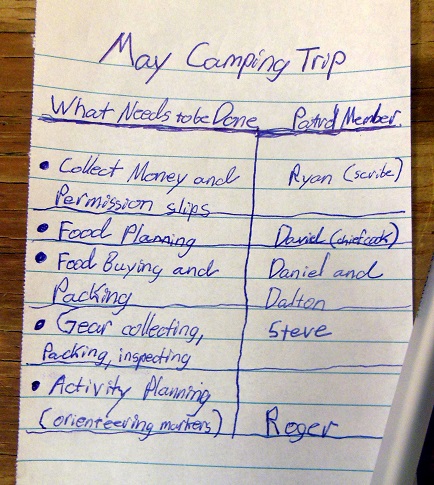 May Camping Trip
What Needs to be Done Patrol Member
• Collect Money and Ryan (scribe)
Permission slips
• Food Planning David (chief cook)
• Food Buying and Daniel and
Packing Dalton
• Gear collecting, Steve
Packing, inspecting
• Activity Planning
(orienteering markers) Roger